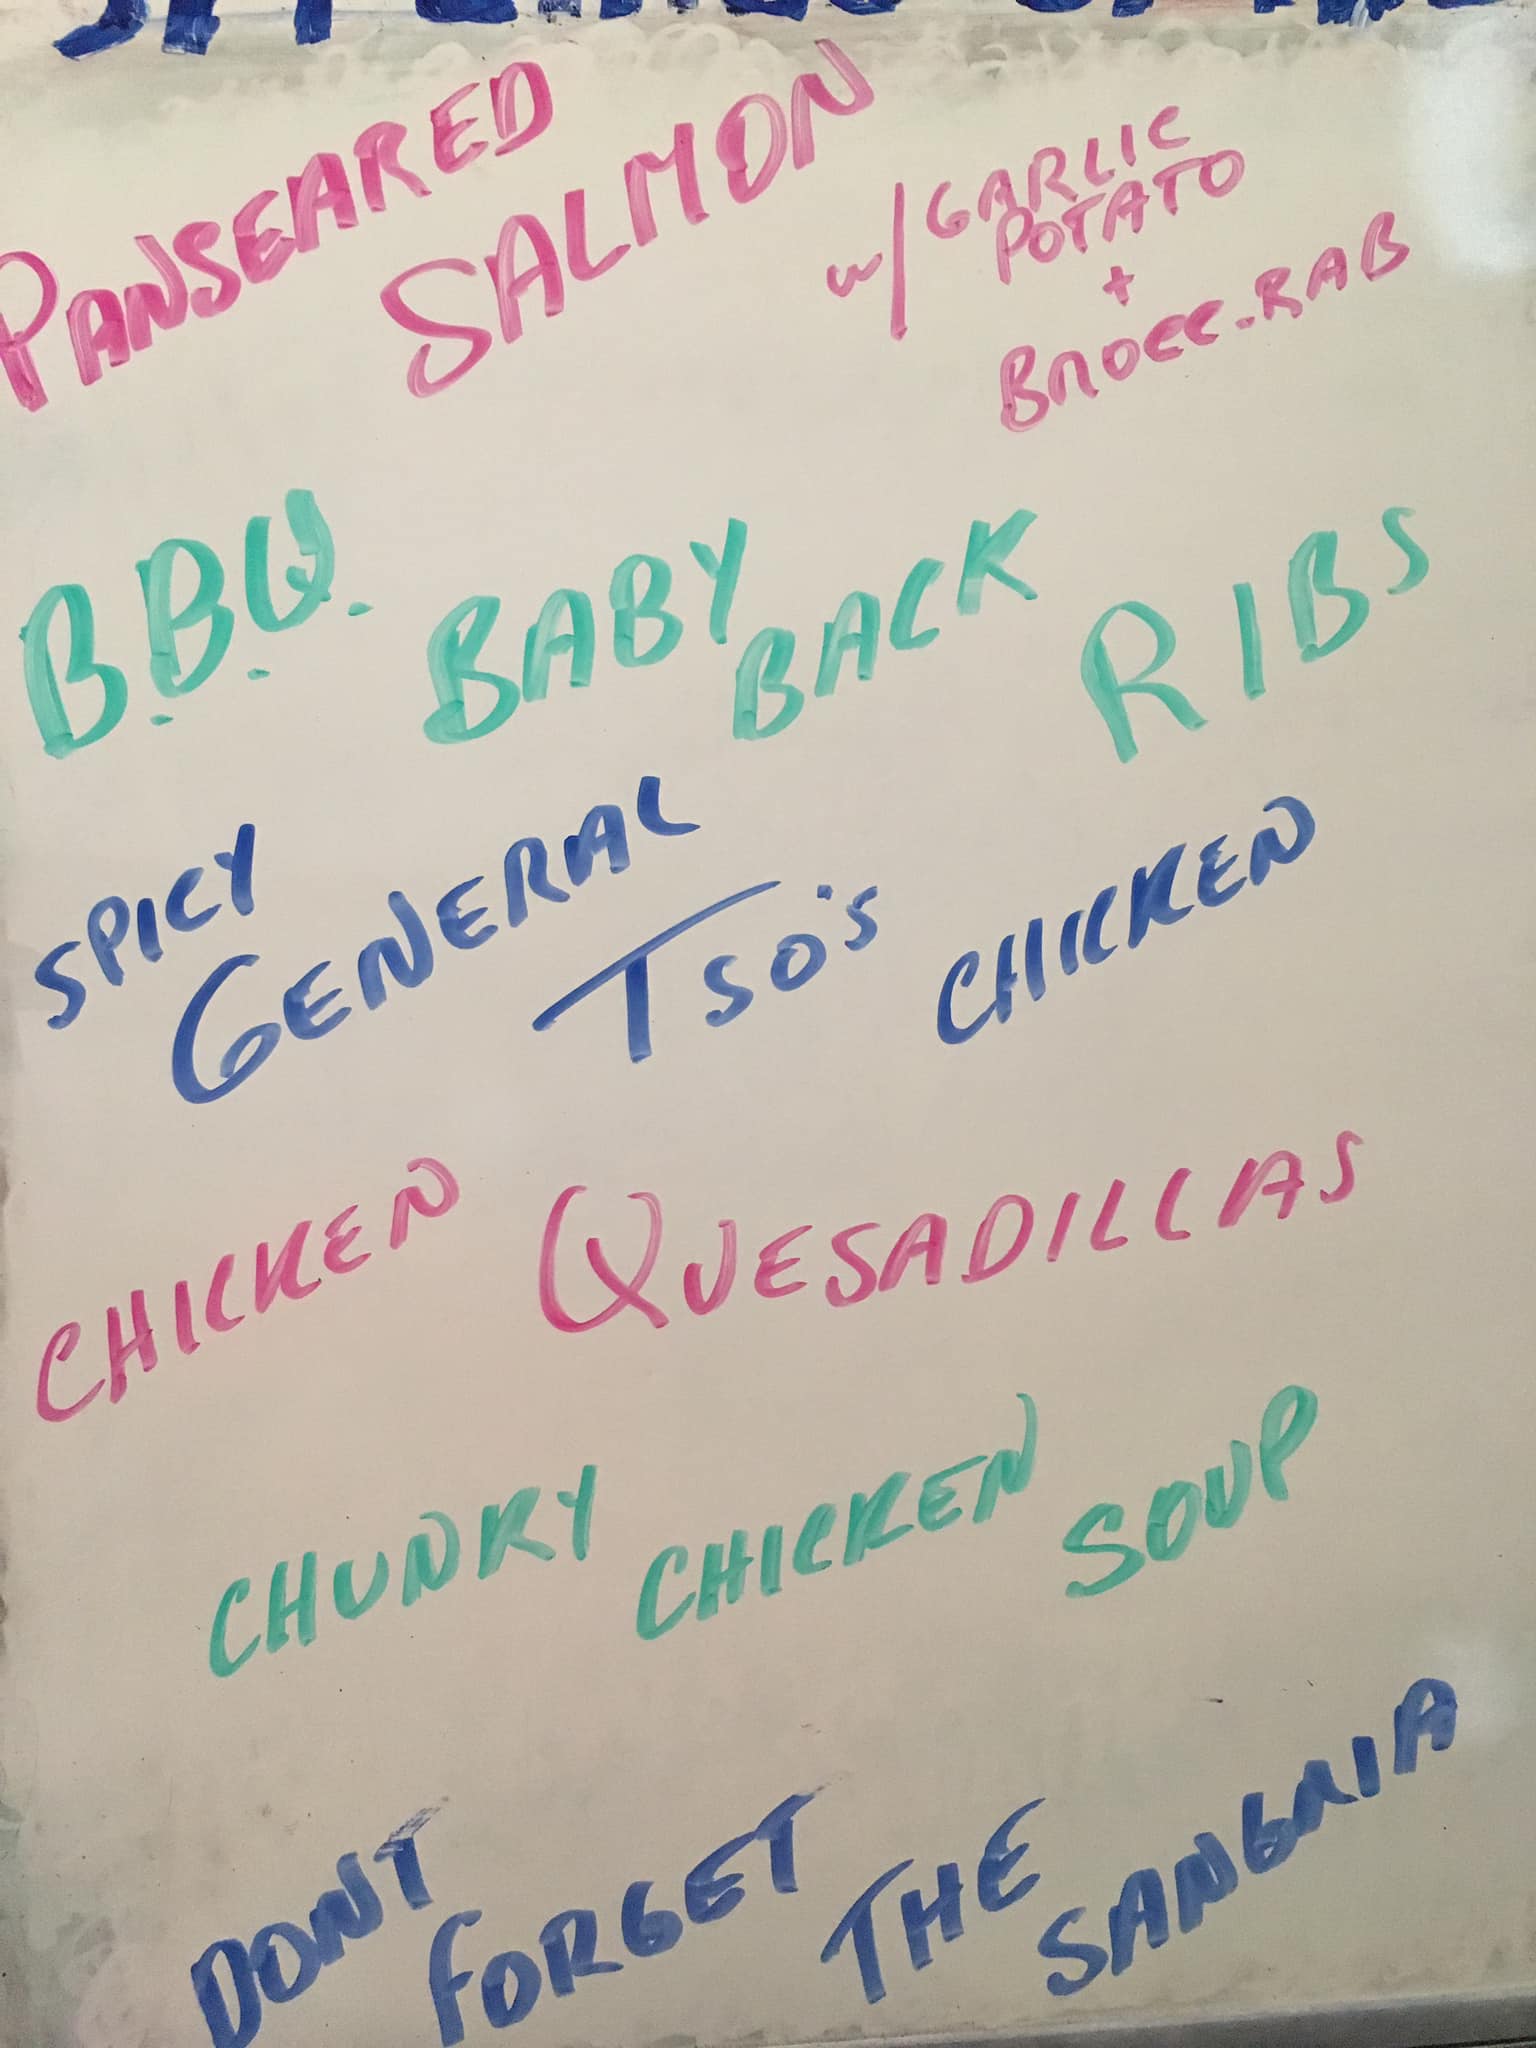 PANSEARED
SALMON
w/ GARLIC
POTATO
+
BROCC.RAB
B.B.Q. BABY BACK RIBS
SPICY
GENERAL TSO'S CHICKEN
CHICKEN QUESADILLAS
CHUNKY CHICKEN SOUP
DONT FORGET THE SANGRIA